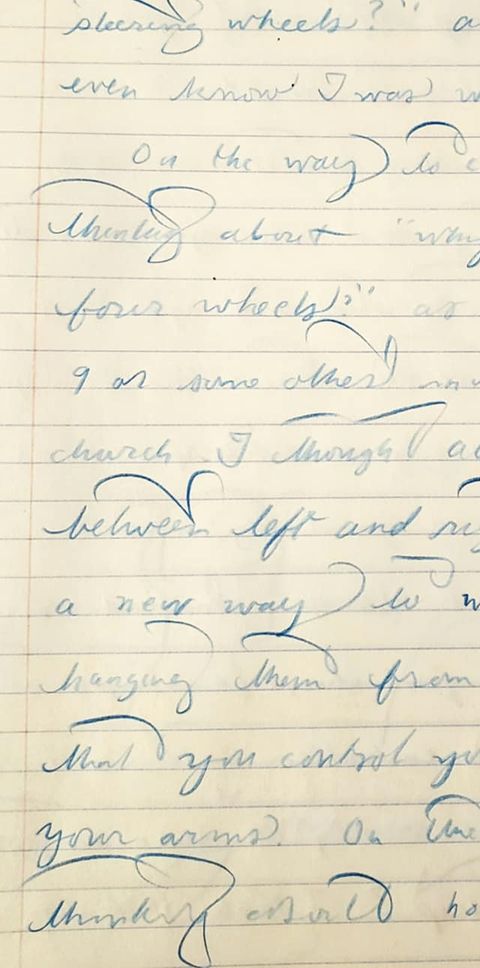 steering wheels?" a
even know I was w
On the way to c
thinking about "why
four wheels?" as
9 or some other
church I though
between left and
a new way to w
hanging them from
that you control yo
your arms. On the
thinking about ho